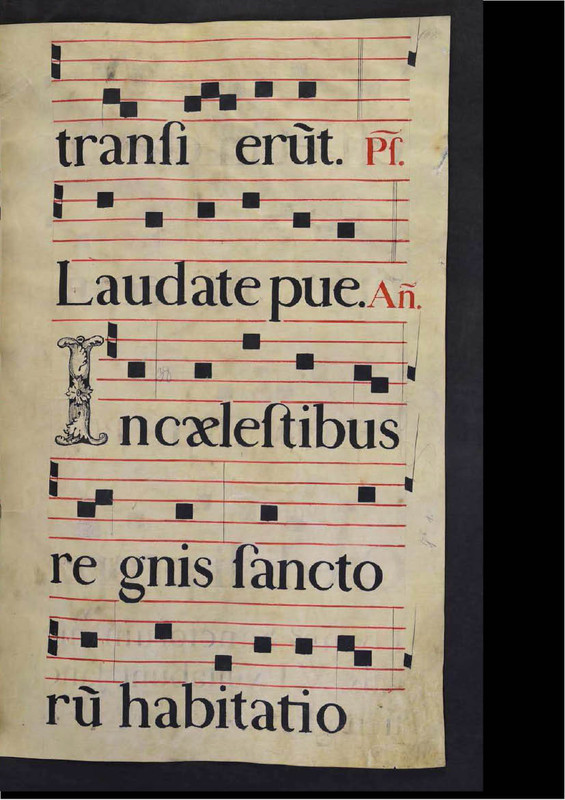 tranſi erũt. Pſ̃.
Laudate pue. Añ.
In cæleſtibus
re gnis ſancto
rũ habitatio